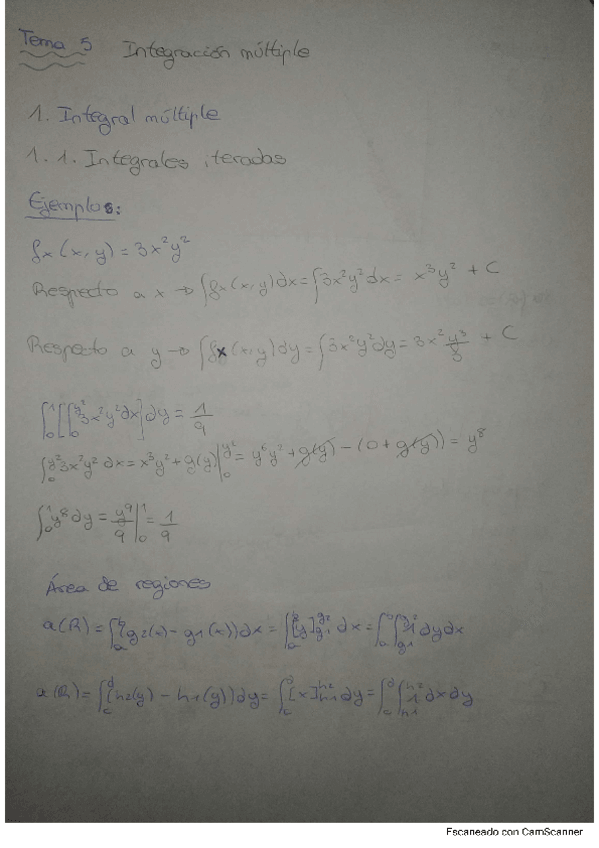 Tema 5 Integración múltiple
1. Integral múltiple
1.1. Integrales iteradas
Ejemplos:
fx(x,y) = 3x²y²
Respecto a x → ∫fx(x,y)dx = ∫3x²y²dx = x³y² + C
Respecto a y → ∫fx(x,y)dy = ∫3x²y²dy = 3x² y³/3 + C
∫₀¹[∫₀^{y²} 3x²y²dx]dy = 1/9
∫₀^{y²} 3x²y² dx = x³y² + g(y)|₀^{y²} = y⁶y² + g(y) − (0 + g(y)) = y⁸
∫₀¹ y⁸ dy = y⁹/9|₀¹ = 1/9
Área de regiones
a(R) = ∫ₐᵇ(g2(x) − g1(x))dx = ∫ₐᵇ[y]_{g1}^{g2} dx = ∫ₐᵇ∫_{g1}^{g2} 1 dydx
a(R) = ∫_c^d[h2(y) − h1(y))dy = ∫_c^d [x]_{h1}^{h2} dy = ∫_c^d∫_{h1}^{h2} 1 dxdy
Escaneado con CamScanner